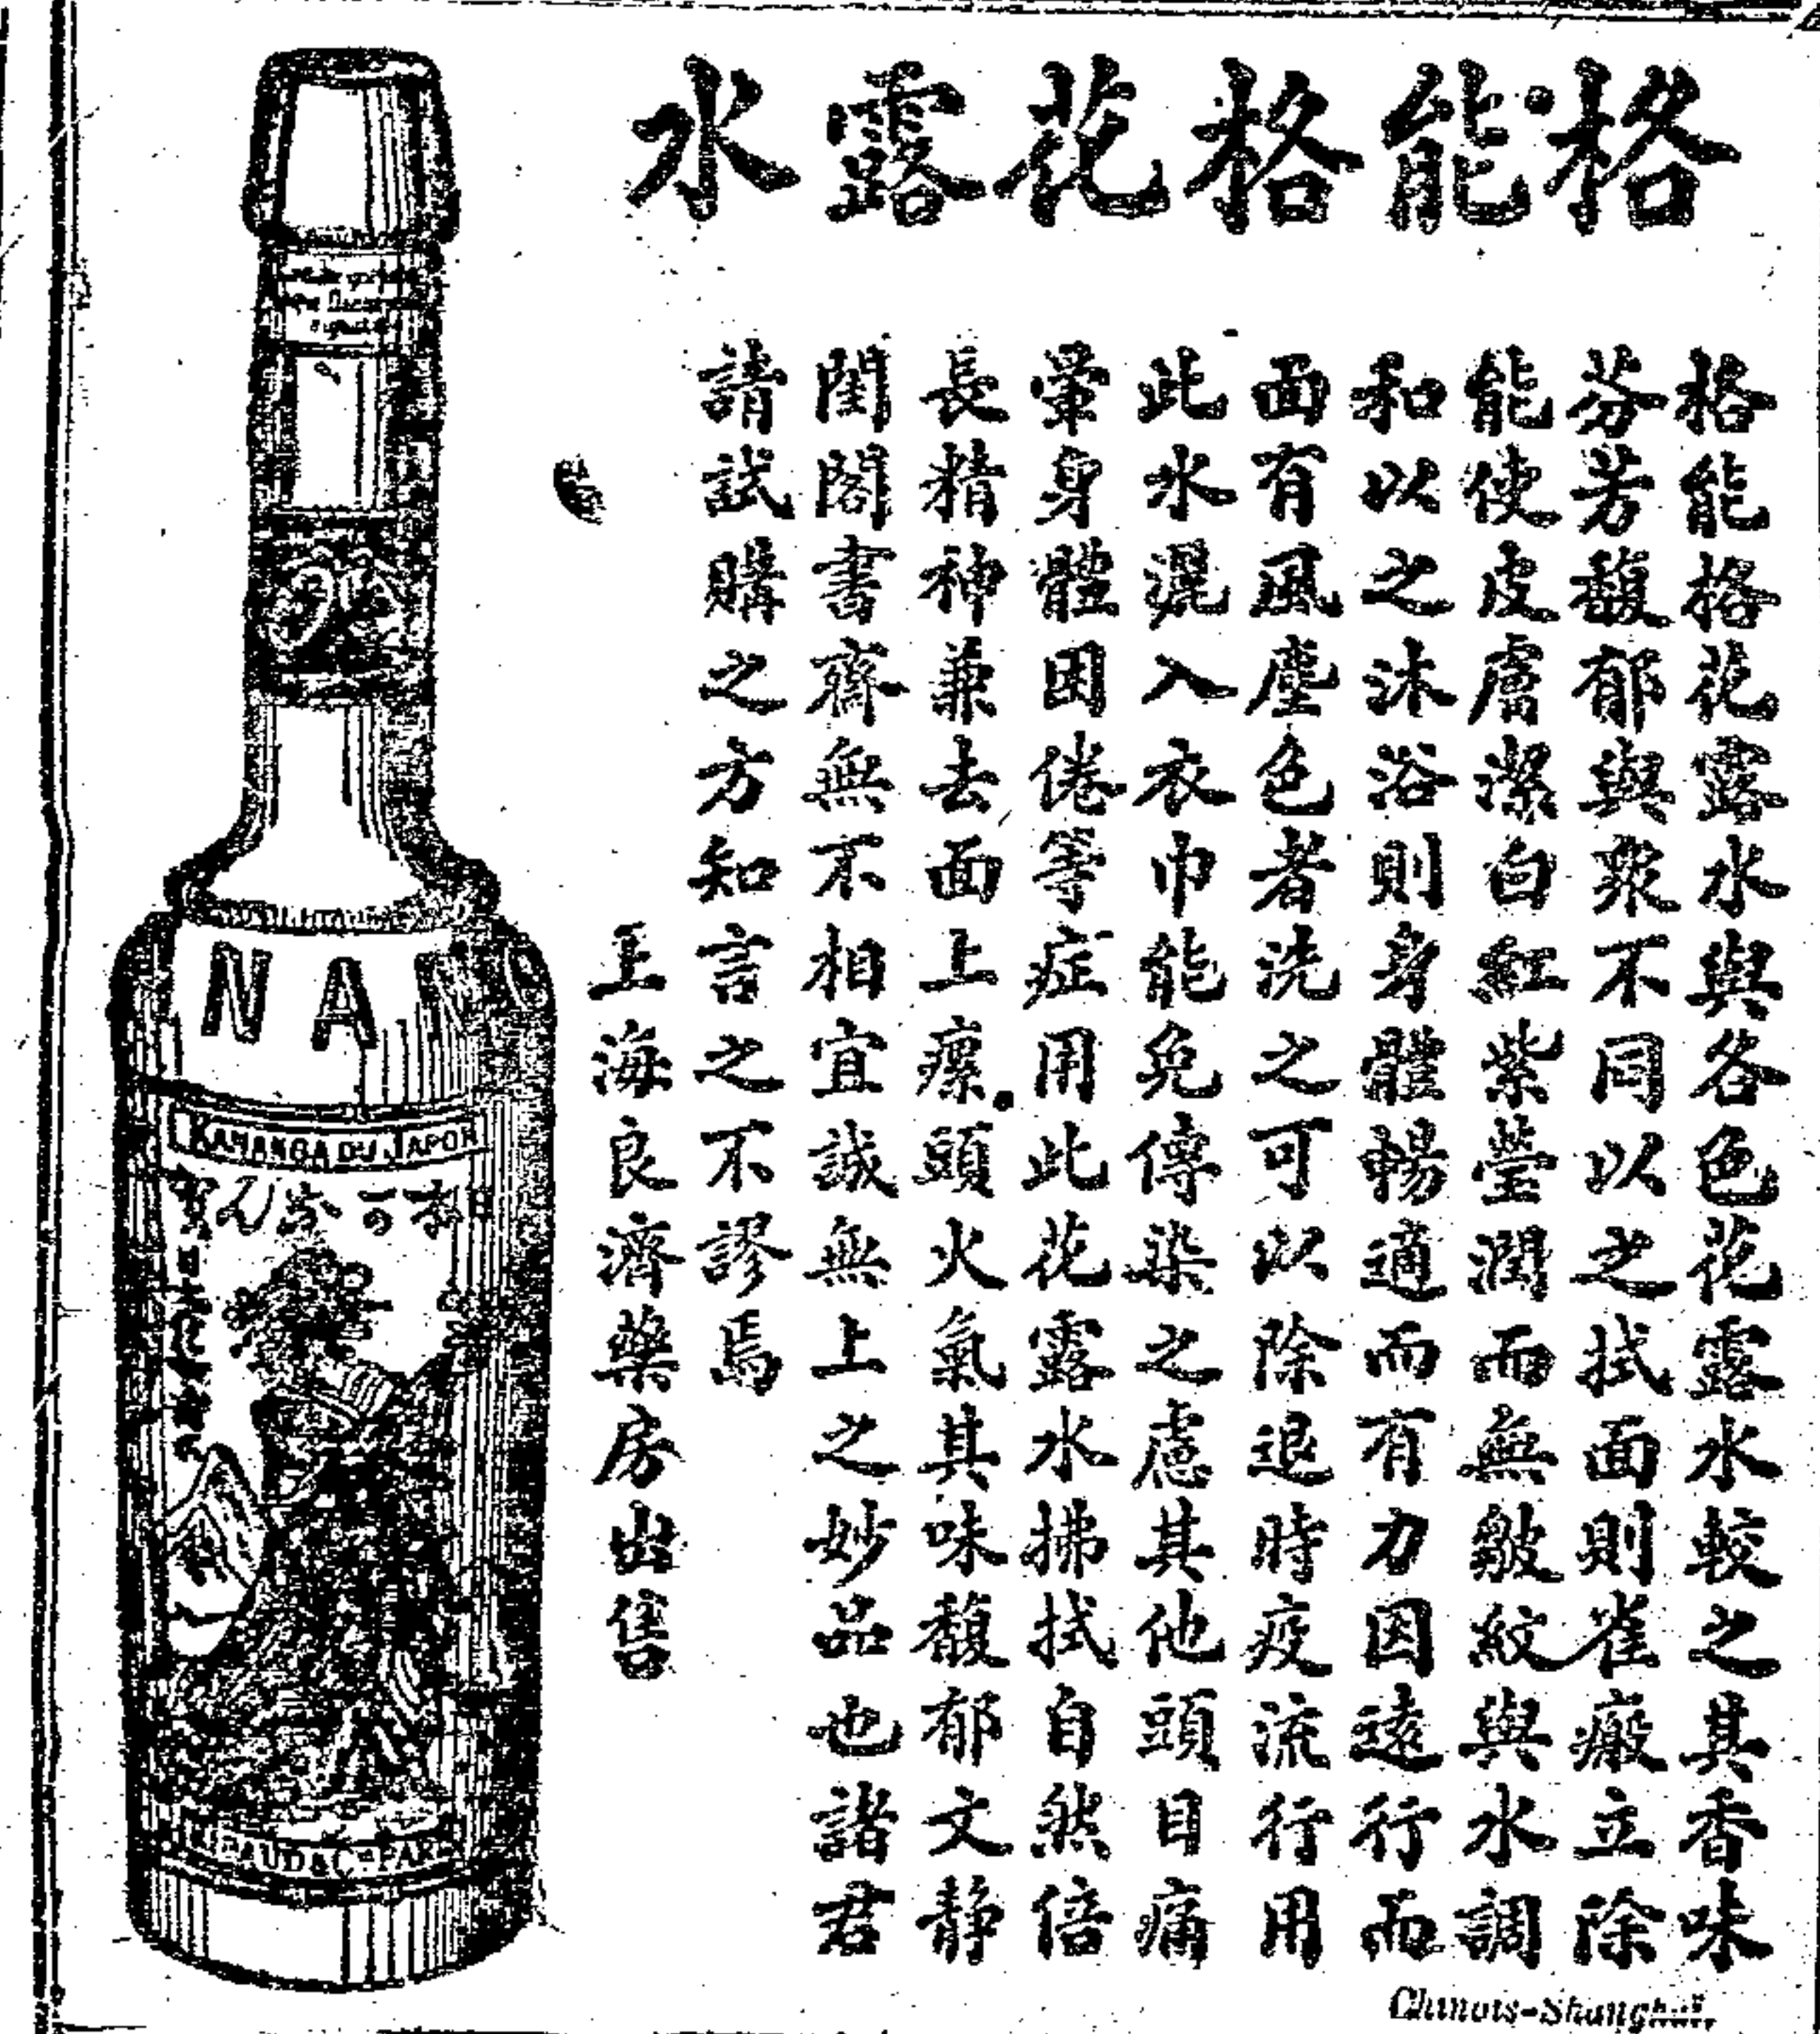 格能格花露水
格能格花露水與各色花露水較之其香味
芬芳馥郁與衆不同以之拭面則雀瘢立除
能使皮膚潔白紅紫瑩潤而無皺紋與水調
和以之沐浴則身體暢適而有力因遠行而
面有風塵色者洗之可以除退時疫流行用
此水灑入衣巾能免傳染之慮其他頭目痛
暈身體困倦等症用此花露水拂拭自然倍
長精神兼去面上瘰頭火氣其味馥郁文静
閨閣書齋無不相宜誠無上之妙品也諸君
請試購之方知言之不謬焉
上海良濟藥房出售
NA
KANANGA DU JAPON
Chinois-Shanghaï.